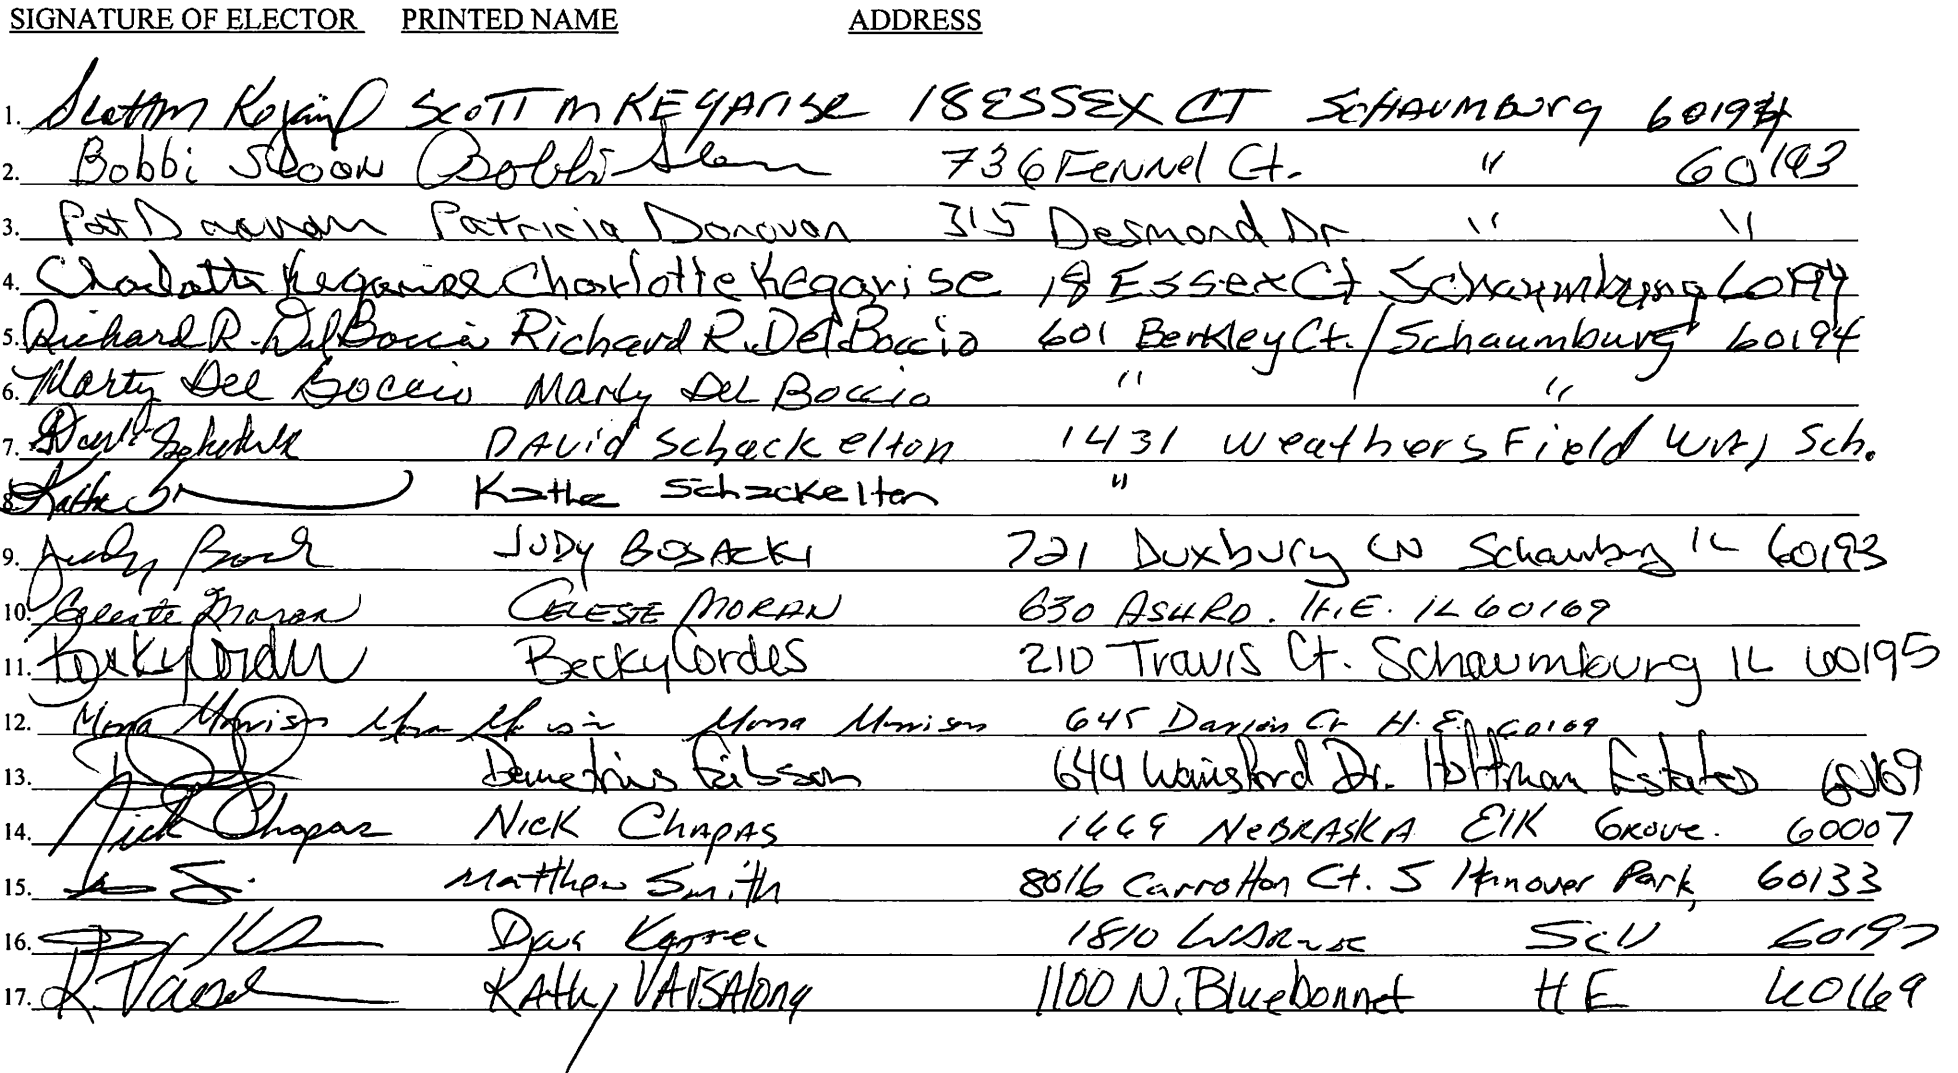 SIGNATURE OF ELECTOR PRINTED NAME ADDRESS
1. Scott M Kegarise SCOTT M KEGARISE 18 ESSEX CT SCHAUMBURG 60194
2. Bobbi Sloan Bobbi Sloan 736 Fennel Ct. " 60193
3. Pat Donovan Patricia Donovan 315 Desmond Dr " "
4. Charlotte Kegarise Charlotte Kegarise 18 Essex Ct Schaumburg 60194
5. Richard R. Del Boccio Richard R. Del Boccio 601 Berkley Ct. / Schaumburg 60194
6. Marty Del Boccio Marty Del Boccio " "
7. David Schackelton 1431 Weathersfield Way Sch.
8. Kathe Kathe Schackelton "
9. Judy JUDY BOSACKI 721 Duxbury LN Schaumburg IL 60193
10. Celeste Moran CELESTE MORAN 630 ASH RD. H.E. IL 60169
11. Becky Cordes Becky Cordes 210 Travis Ct. Schaumburg IL 60195
12. Mona Morrison Mona Mona Morrison 645 Ct H.E. 60169
13. Demetrius Gibson 644 Dr. Hoffman Estates 60169
14. Nick Chapas NICK CHAPAS 1469 NEBRASKA Elk Grove. 60007
15. Matthew Smith 8016 Carrolton Ct. S Hanover Park, 60133
16. Dave 1810
17. K. KATHY VARSALONA 1100 N. Bluebonnet H E 60169